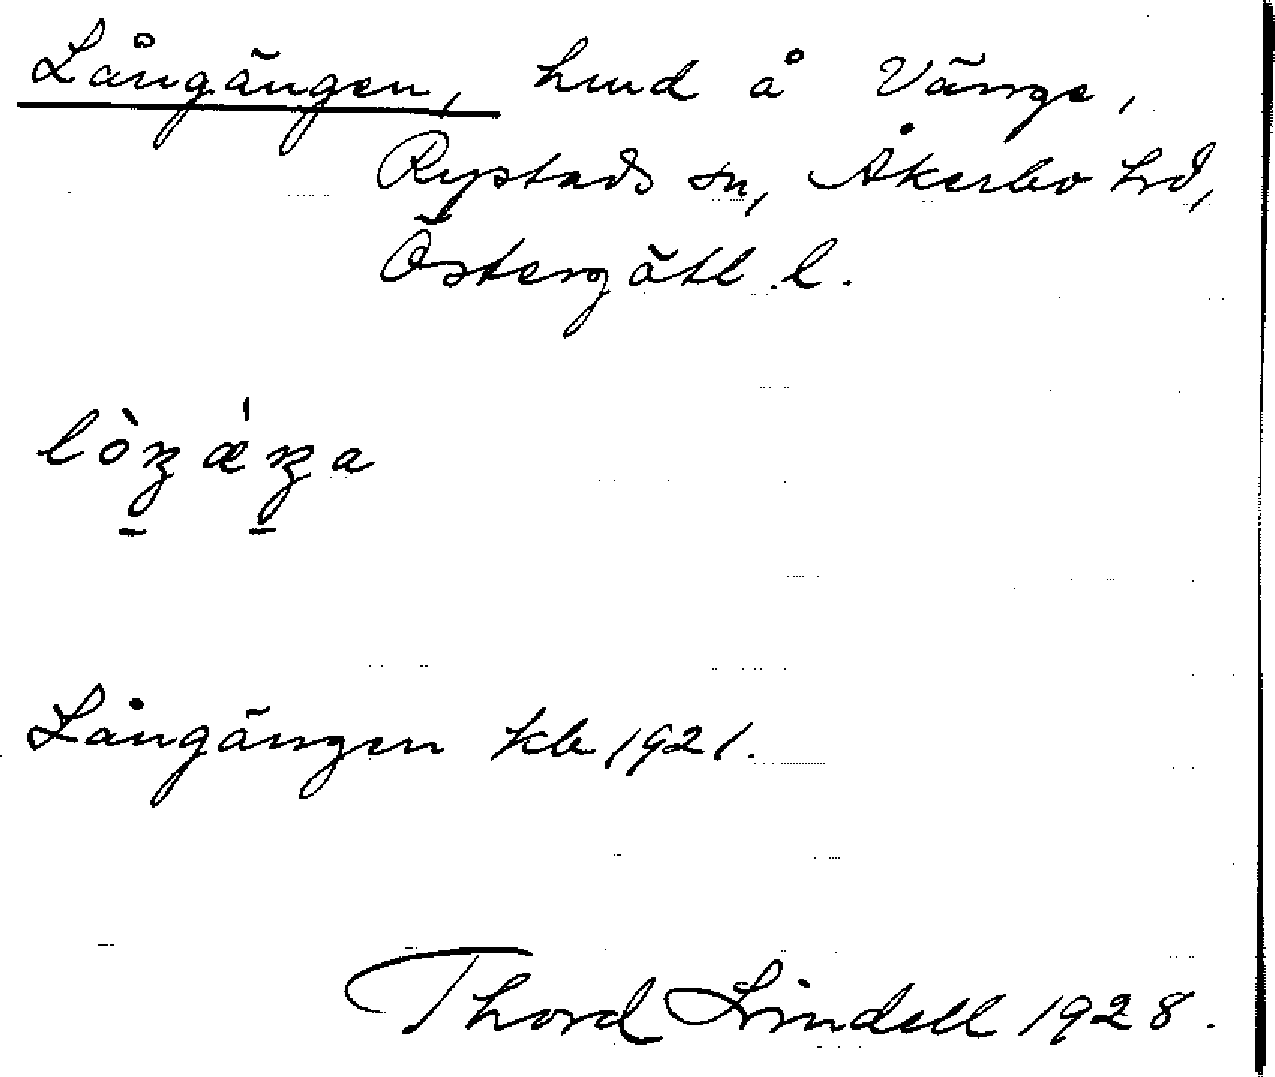 Långängen, hmd å Vänge,
Rystads sn, Åkerbo hd,
Östergötl. l.
Långängen kb 1921.
Thord Lindell 1928.